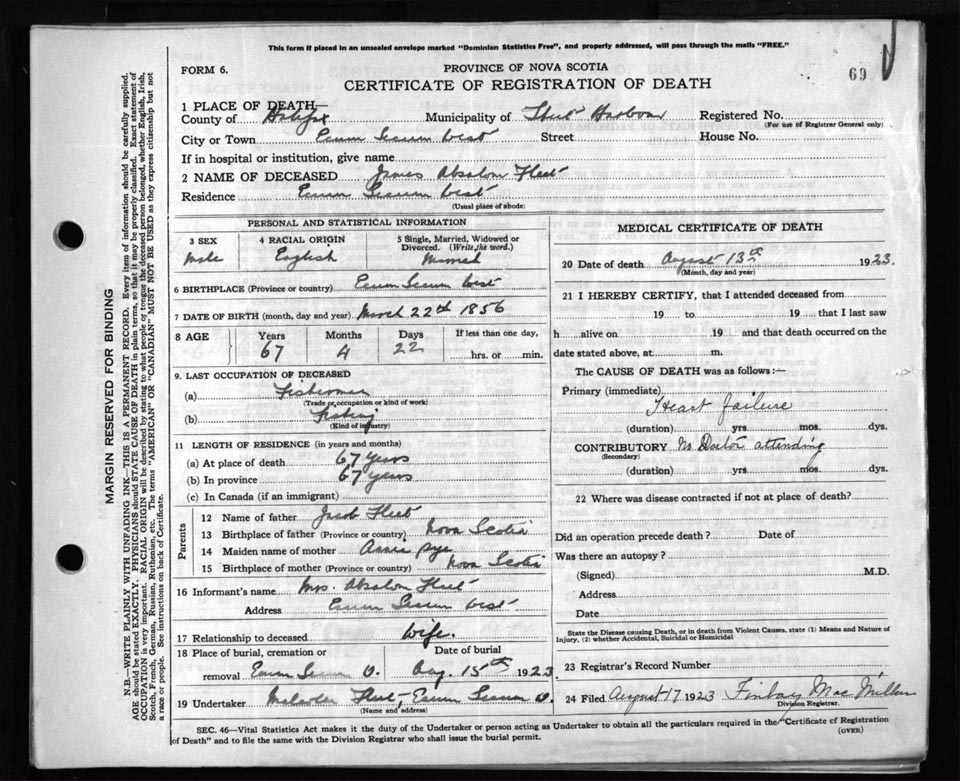 This form if placed in an unsealed envelope marked "Dominion Statistics Free", and properly addressed, will pass through the mails "FREE."
FORM 6.
PROVINCE OF NOVA SCOTIA
69
CERTIFICATE OF REGISTRATION OF DEATH
1 PLACE OF DEATH—
County of Halifax Municipality of Harbour Registered No.
(For use of Registrar General only)
City or Town Ecum Secum West Street House No.
If in hospital or institution, give name
2 NAME OF DECEASED James Absalom Fleet
Residence Ecum Secum West
(Usual place of abode)
PERSONAL AND STATISTICAL INFORMATION
3 SEX 4 RACIAL ORIGIN 5 Single, Married, Widowed or Divorced. (Write the word.)
Male English Married
6 BIRTHPLACE (Province or country) Ecum Secum West
7 DATE OF BIRTH (month, day and year) March 22th 1856
8 AGE Years Months Days If less than one day,
67 4 22 hrs. or min.
9. LAST OCCUPATION OF DECEASED
(a) Fisherman
(Trade or occupation or kind of work)
(b) Fishing
(Kind of industry)
11 LENGTH OF RESIDENCE (in years and months)
(a) At place of death 67 years
(b) In province 67 years
(c) In Canada (if an immigrant)
Parents
12 Name of father Jacob Fleet
13 Birthplace of father (Province or country) Nova Scotia
14 Maiden name of mother Annie Pye
15 Birthplace of mother (Province or country) Nova Scotia
16 Informant's name Mrs. Absalom Fleet
Address Ecum Secum West
17 Relationship to deceased Wife.
18 Place of burial, cremation or Date of burial
removal Ecum Secum W. Aug. 15th 1923
19 Undertaker Fleet, Ecum Secum W.
(Name and address)
MEDICAL CERTIFICATE OF DEATH
20 Date of death August 13th 1923.
(Month, day and year)
21 I HEREBY CERTIFY, that I attended deceased from
19 to 19 that I last saw
h alive on 19 and that death occurred on the
date stated above, at m.
The CAUSE OF DEATH was as follows:—
Primary (immediate)
Heart failure
(duration) yrs. mos. dys.
CONTRIBUTORY No Doctor attending
(Secondary)
(duration) yrs. mos. dys.
22 Where was disease contracted if not at place of death?
Did an operation precede death? Date of
Was there an autopsy?
(Signed) M.D.
Address
Date
State the Disease causing Death, or in death from Violent Causes, state (1) Means and Nature of
Injury, (2) whether Accidental, Suicidal or Homicidal
23 Registrar's Record Number
24 Filed August 17 1923 Finlay MacMillan
Division Registrar.
SEC. 46—Vital Statistics Act makes it the duty of the Undertaker or person acting as Undertaker to obtain all the particulars required in the "Certificate of Registration
of Death" and to file the same with the Division Registrar who shall issue the burial permit.
(OVER)
MARGIN RESERVED FOR BINDING
N.B.—WRITE PLAINLY WITH UNFADING INK—THIS IS A PERMANENT RECORD. Every item of information should be carefully supplied.
AGE should be stated EXACTLY. PHYSICIANS should STATE CAUSE OF DEATH in plain terms, so that it may be properly classified. Exact statement of
OCCUPATION is very important. RACIAL ORIGIN will be described by stating to what people or tongue the deceased person belonged, whether English, Irish,
Scotch, French, German, Russian, Ruthenian, etc. The terms "AMERICAN" OR "CANADIAN" MUST NOT BE USED as they express citizenship but not
a race or people. See instructions on back of Certificate.